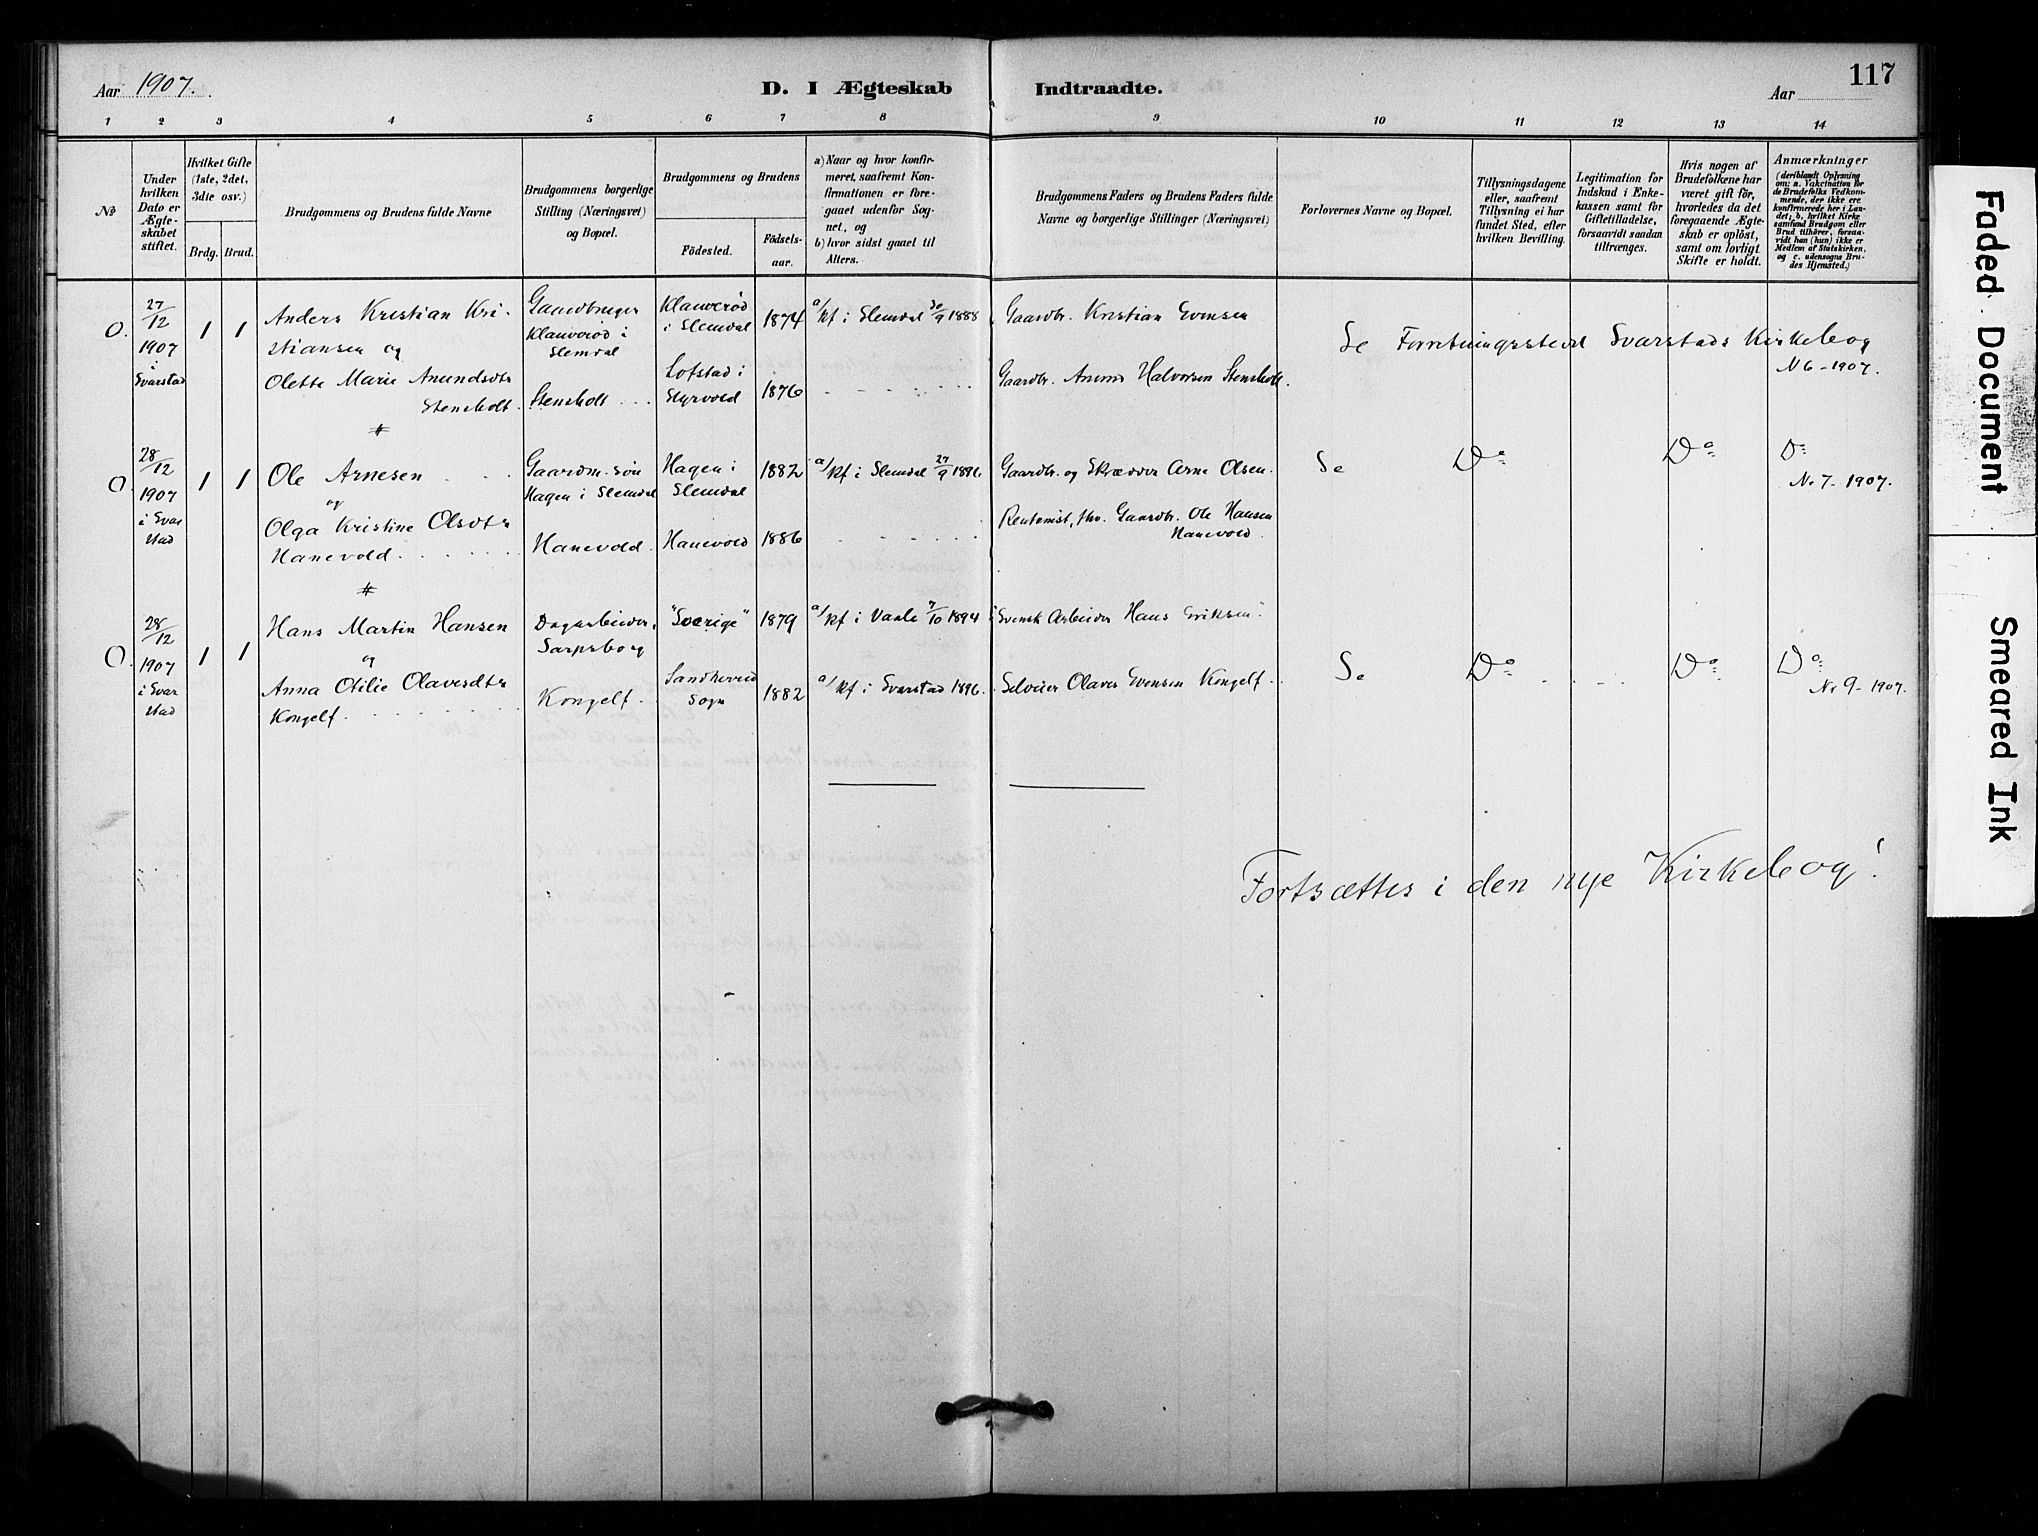 117
Aar 1907.
D. I Ægteskab Indtraadte.
Aar
1 2 3 4 5 6 7 8 9 10 11 12 13 14
No
Under hvilken Dato er Ægteskabet stiftet.
Hvilket Gifte (1ste, 2det, 3die osv.)
Brdg. Brud.
Brudgommens og Brudens fulde Navne
Brudgommens borgerlige Stilling (Næringsvei) og Bopæl.
Brudgommens og Brudens
Födested.
Födselsaar.
a) Naar og hvor konfirmeret, saafremt Konfirmationen er foregaaet udenfor Sognet, og
b) hvor sidst gaaet til Alters.
Brudgommens Faders og Brudens Faders fulde Navne og borgerlige Stillinger (Næringsvei)
Forlovernes Navne og Bopæl.
Tillysningsdagene eller, saafremt Tillysning ei har fundet Sted, efter hvilken Bevilling.
Legitimation for Indskud i Enkekassen samt for Giftetilladelse, forsaavidt saadan tiltrænges.
Hvis nogen af Brudefolkene har været gift för, hvorledes da det foregaaende Ægteskab er oplöst, samt om lovligt Skifte er holdt.
Anmærkninger (deriblandt Oplysning om: a. Vakcination for de Brudefolks Vedkommende, der ikke ere konfirmerede her i Landet; b. hvilket Kirkesamfund Brudgom eller Brud tilhörer, forsaavidt han (hun) ikke er Medlem af Statskirken, og c. udensogns Brudes Hjemsted.)
0. 27/12 1907 i Svarstad 1 1
Anders Kristian Kri-
stiansen og
Olette Marie Anundsdtr
Stensholt.
Gaardbruger
Klauverød i
Slemdal
Stensholt
Klauverød
i Slemdal 1874
Lofstad i
Styrvold 1876
a/ kf i Slemdal 30/9 1888
Gaardbr. Kristian Evensen
Gaardbr. Anund Halvorsen Stensholt.
Se Forretningssted Svarstads Kirkebog
N 6 - 1907.
0. 28/12 1907 i Svarstad 1 1
Ole Arnesen
og
Olga Kristine Olsdtr
Hanevold
Gaardm. søn
Hagen i Slemdal
Hanevold
Hagen i
Slemdal 1882
Hanevold 1886
a/ kf i Slemdal 27/9 1896
Gaardbr. og Skrædder Arne Olsen
Rentenist, fhv. Gaardbr. Ole Hansen
Hanevold
Se Do Do Do
Nr 7 - 1907.
0. 28/12 1907 i Svarstad 1 1
Hans Martin Hansen
og
Anna Otilie Olavesdtr
Kongelf.
Dagarbeider,
Sarpsborg
Kongelf
"Sverige" 1879
Sandherred
Sogn 1882
a/ kf i Vaale 7/10 1894
a/ kf i Svarstad 1896.
Svensk Arbeider Hans Eriksen
Selveier Olaves Evensen Kongelf
Se Do Do Do
Nr 9 - 1907.
Fortsættes i den nye Kirkebog!
Faded Document
Smeared Ink